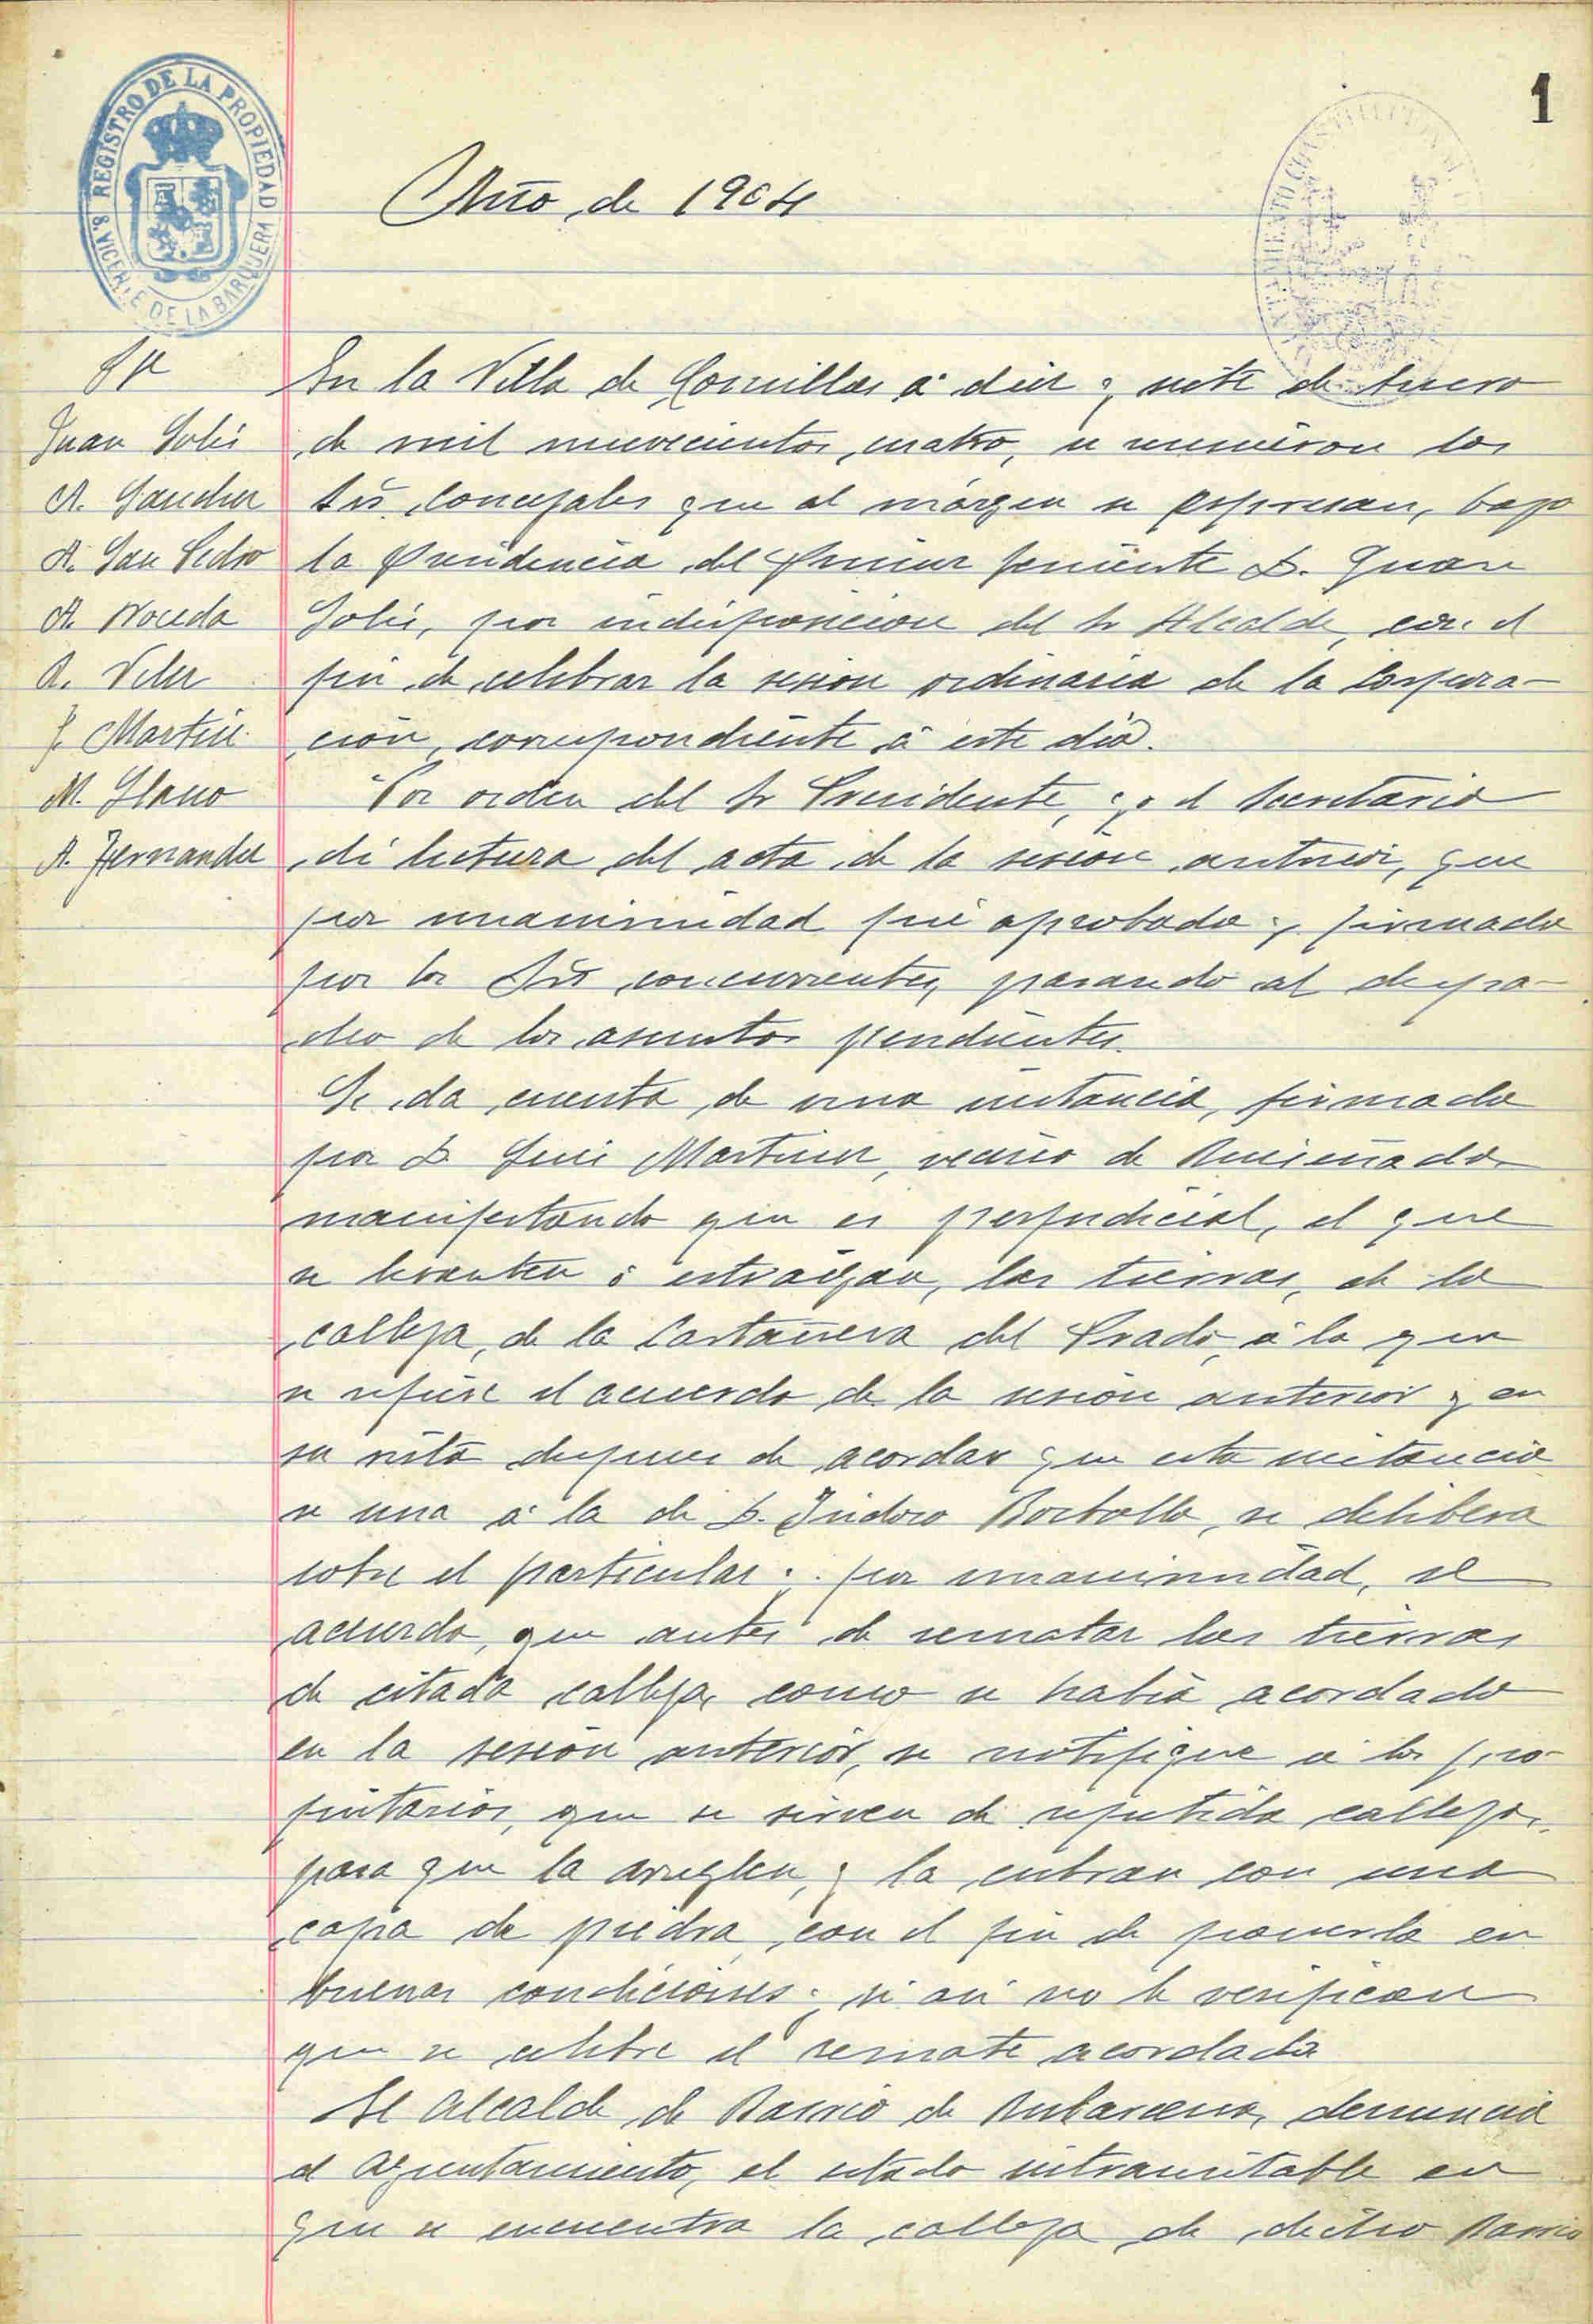 1
REGISTRO DE LA PROPIEDAD
S. VICENTE DE LA BARQUERA
Año de 1904
Sres
Juan Solís
A. Sanchez
A. San Pedro
A. Noceda
R. Velez
J. Martin
M. Llano
A. Fernandez
En la Villa de Comillas á diez y siete de Enero
de mil nuevecientos cuatro, se reunieron los
Srs. Concejales que al márgen se espresan, bajo
la Presidencia del Primer Teniente D. Juan
Solís, por indisposicion del Sr Alcalde, con el
fin de celebrar la sesion ordinaria de la Corpora-
ción, correspondiente á este dia.
Por orden del Sr Presidente, yo el Secretario
dí lectura del acta de la sesion anterior, que
por unanimidad fué aprobada y firmada
por los Srs concurrentes, pasando al despa-
cho de los asuntos pendientes.
Se da cuenta de una instancia, firmada
por D. Luis Martinez, vecino de Ruiseñada
manifestando que es perjudicial, el que
se levanten ó estraigan, las tierras, de la
calleja, de la Castañera del Prado, á la que
se refiere el acuerdo de la sesion anterior y en
su vista despues de acordar que esta instancia
se una á la de D. Isidoro Borbolla, se delibera
sobre el particular y por unanimidad, se
acuerda, que antes de rematar las tierras
de citada calleja, como se había acordado
en la sesión anterior, se notifique á los pro-
pietarios, que se sirven de repetida calleja,
para que la arreglen, y la cubran con una
capa de piedra, con el fin de ponerla en
buenas condiciones y si así no lo verifican
que se celebre el remate acordado
El Alcalde de Barrio de Rubarcena, denuncia
al Ayuntamiento, el estado intransitable en
que se encuentra la calleja de dicho Barrio